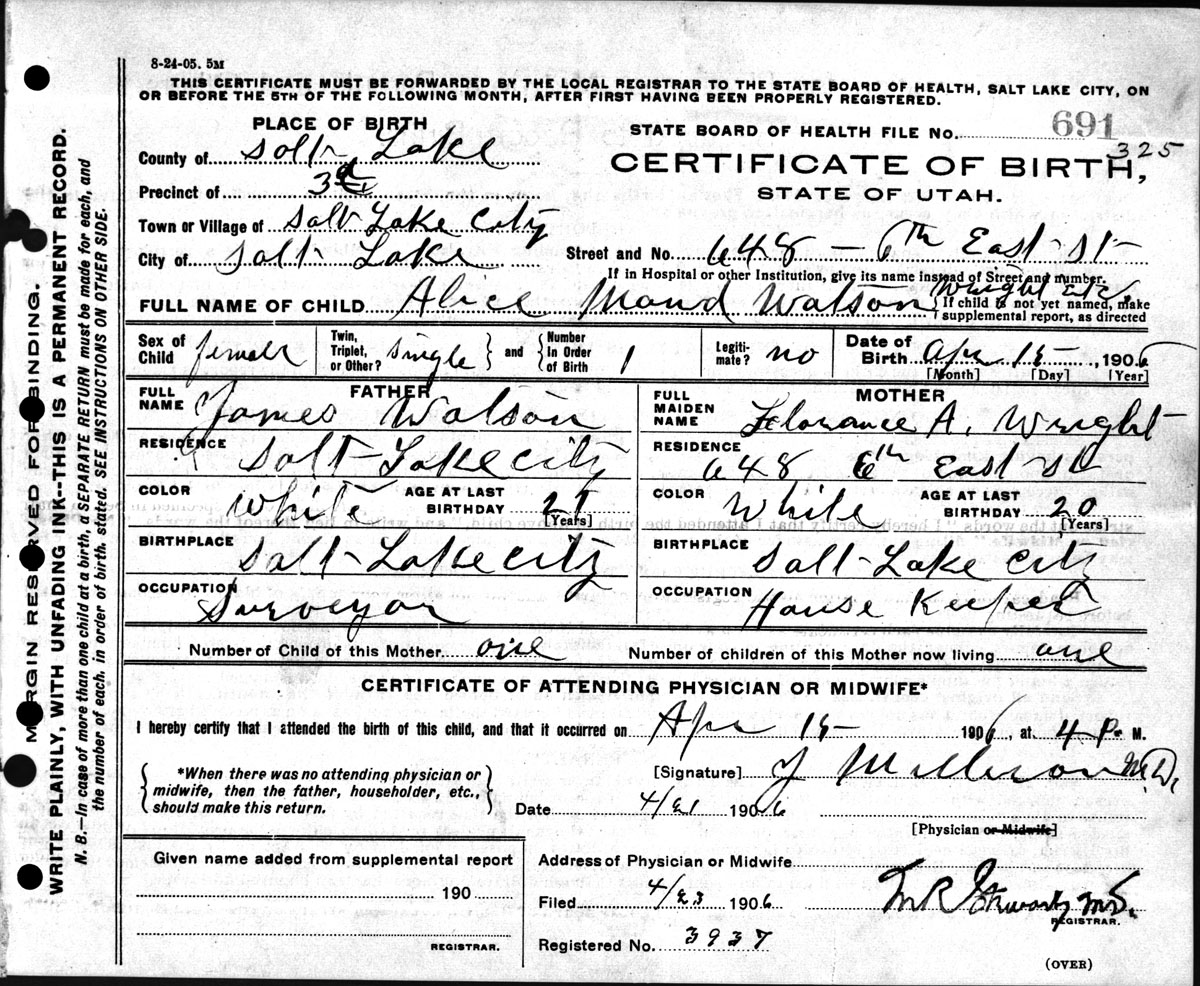 8-24-05. 5M
THIS CERTIFICATE MUST BE FORWARDED BY THE LOCAL REGISTRAR TO THE STATE BOARD OF HEALTH, SALT LAKE CITY, ON
OR BEFORE THE 5TH OF THE FOLLOWING MONTH, AFTER FIRST HAVING BEEN PROPERLY REGISTERED.
PLACE OF BIRTH
STATE BOARD OF HEALTH FILE No. 691
325
County of Salt Lake
CERTIFICATE OF BIRTH,
Precinct of 3d
STATE OF UTAH.
Town or Village of Salt Lake City
City of Salt Lake
Street and No. 648 – 6th East St
If in Hospital or other Institution, give its name instead of Street and number.
FULL NAME OF CHILD Alice Maud Watson Wright
If child is not yet named, make
supplemental report, as directed
Sex of Child female
Twin, Triplet, or Other? Single and Number In Order of Birth 1
Legiti-mate? no
Date of Birth Apr 15, 1906
[Month] [Day] [Year]
FATHER
FULL NAME James Watson
RESIDENCE Salt Lake City
COLOR White AGE AT LAST BIRTHDAY 21 [Years]
BIRTHPLACE Salt Lake City
OCCUPATION Surveyor
MOTHER
FULL MAIDEN NAME Florance A. Wright
RESIDENCE 648 6th East St
COLOR White AGE AT LAST BIRTHDAY 20 [Years]
BIRTHPLACE Salt Lake City
OCCUPATION House Keeper
Number of Child of this Mother one Number of children of this Mother now living one
CERTIFICATE OF ATTENDING PHYSICIAN OR MIDWIFE*
I hereby certify that I attended the birth of this child, and that it occurred on Apr 15 1906, at 4 P. M.
*When there was no attending physician or
midwife, then the father, householder, etc.,
should make this return.
[Signature] J M. D.
Date 4/21 1906
[Physician or Midwife]
Given name added from supplemental report
190
REGISTRAR.
Address of Physician or Midwife
Filed 4/23 1906 M R Stewart M.D.
REGISTRAR.
Registered No. 3937
(OVER)
MARGIN RESERVED FOR BINDING.
WRITE PLAINLY, WITH UNFADING INK--THIS IS A PERMANENT RECORD.
N. B.—In case of more than one child at a birth, a SEPARATE RETURN must be made for each, and
the number of each, in order of birth, stated. SEE INSTRUCTIONS ON OTHER SIDE.